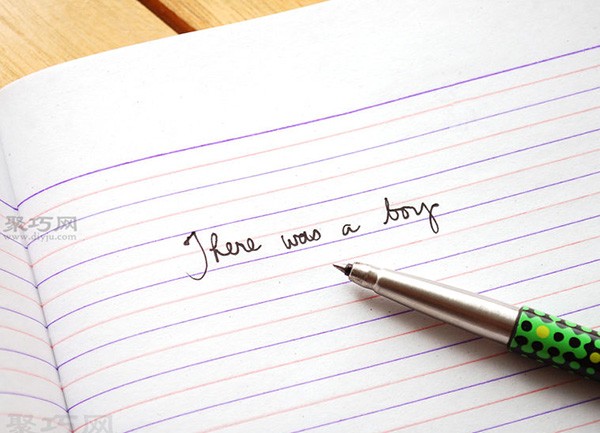 聚巧网
www.diyju.com
There was a boy
聚巧网